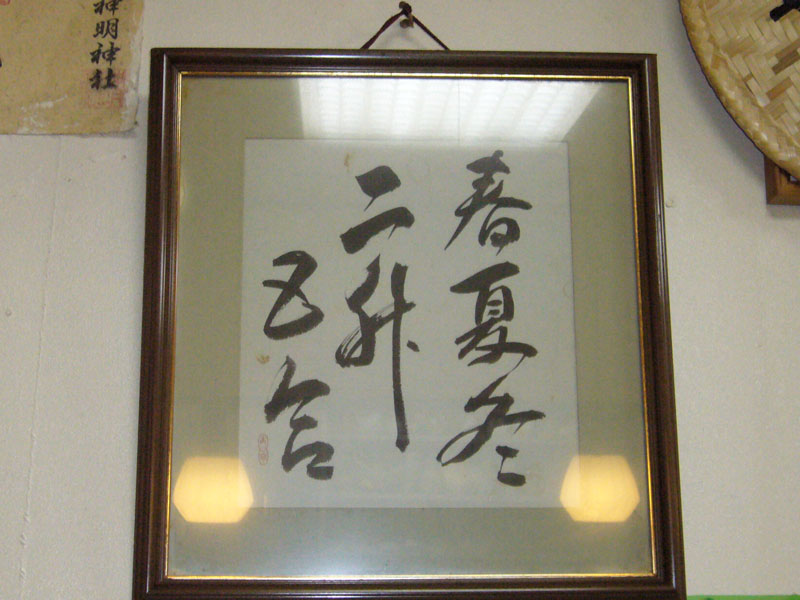 春夏冬
二升
五合
神明神社